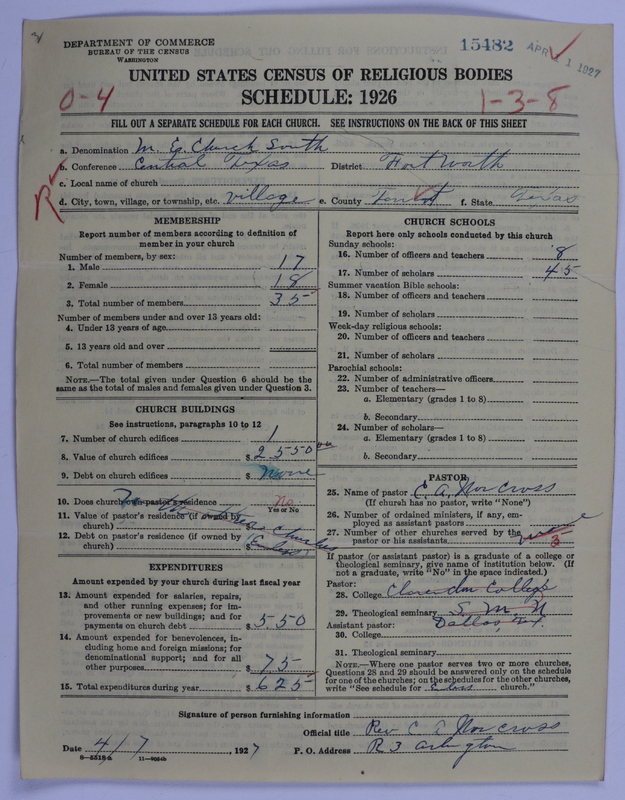 DEPARTMENT OF COMMERCE
BUREAU OF THE CENSUS
WASHINGTON
15482
APR 11 1927
UNITED STATES CENSUS OF RELIGIOUS BODIES
SCHEDULE: 1926
0-4
1-3-8
FILL OUT A SEPARATE SCHEDULE FOR EACH CHURCH. SEE INSTRUCTIONS ON THE BACK OF THIS SHEET
a. Denomination M. E. Church South
b. Conference Central Texas District Fort Worth
c. Local name of church
R
d. City, town, village, or township, etc. village e. County f. State Texas
MEMBERSHIP
Report number of members according to definition of
member in your church
Number of members, by sex:
1. Male 17
2. Female 18
3. Total number of members 35
Number of members under and over 13 years old:
4. Under 13 years of age
5. 13 years old and over
6. Total number of members
NOTE.—The total given under Question 6 should be the
same as the total of males and females given under Question 3.
CHURCH BUILDINGS
See instructions, paragraphs 10 to 12
7. Number of church edifices 1
8. Value of church edifices $ 2550 00
9. Debt on church edifices $ None
10. Does church own pastor's residence No
Yes or No
11. Value of pastor's residence (if owned by
church)
12. Debt on pastor's residence (if owned by
church) $
EXPENDITURES
Amount expended by your church during last fiscal year
13. Amount expended for salaries, repairs,
and other running expenses; for im-
provements or new buildings; and for
payments on church debt $ 550
14. Amount expended for benevolences, in-
cluding home and foreign missions; for
denominational support; and for all
other purposes $ 75
15. Total expenditures during year $ 625
CHURCH SCHOOLS
Report here only schools conducted by this church
Sunday schools:
16. Number of officers and teachers 8
17. Number of scholars 45
Summer vacation Bible schools:
18. Number of officers and teachers
19. Number of scholars
Week-day religious schools:
20. Number of officers and teachers
21. Number of scholars
Parochial schools:
22. Number of administrative officers
23. Number of teachers—
a. Elementary (grades 1 to 8)
b. Secondary
24. Number of scholars—
a. Elementary (grades 1 to 8)
b. Secondary
PASTOR
25. Name of pastor E A Norcross
(If church has no pastor, write "None")
26. Number of ordained ministers, if any, em-
ployed as assistant pastors
27. Number of other churches served by the
pastor or his assistants 3
If pastor (or assistant pastor) is a graduate of a college or
theological seminary, give name of institution below. (If
not a graduate, write "No" in the space indicated.)
Pastor:
28. College Clarendon College
29. Theological seminary S. M. U
Assistant pastor: Dallas, Tex.
30. College
31. Theological seminary
NOTE.—Where one pastor serves two or more churches,
Questions 28 and 29 should be answered only on the schedule
for one of the churches; on the schedules for the other churches,
write "See schedule for church."
Signature of person furnishing information
Official title Rev E A Norcross
Date 4/7, 1927 P. O. Address R 3 Arlington
8-5518a 11-9054b